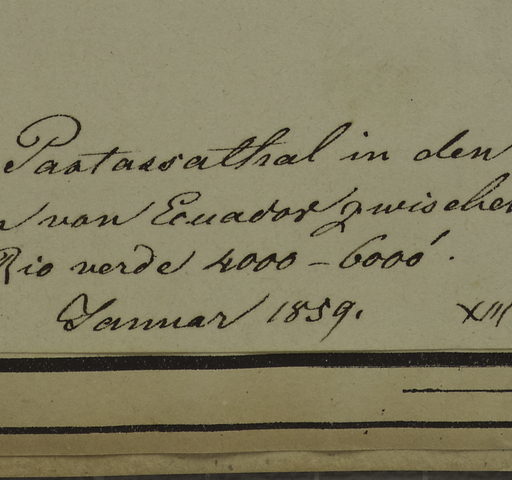 Pastassathal in den
n von Ecuador zwischen
Rio verde 4000 – 6000'.
Januar 1859. XIII